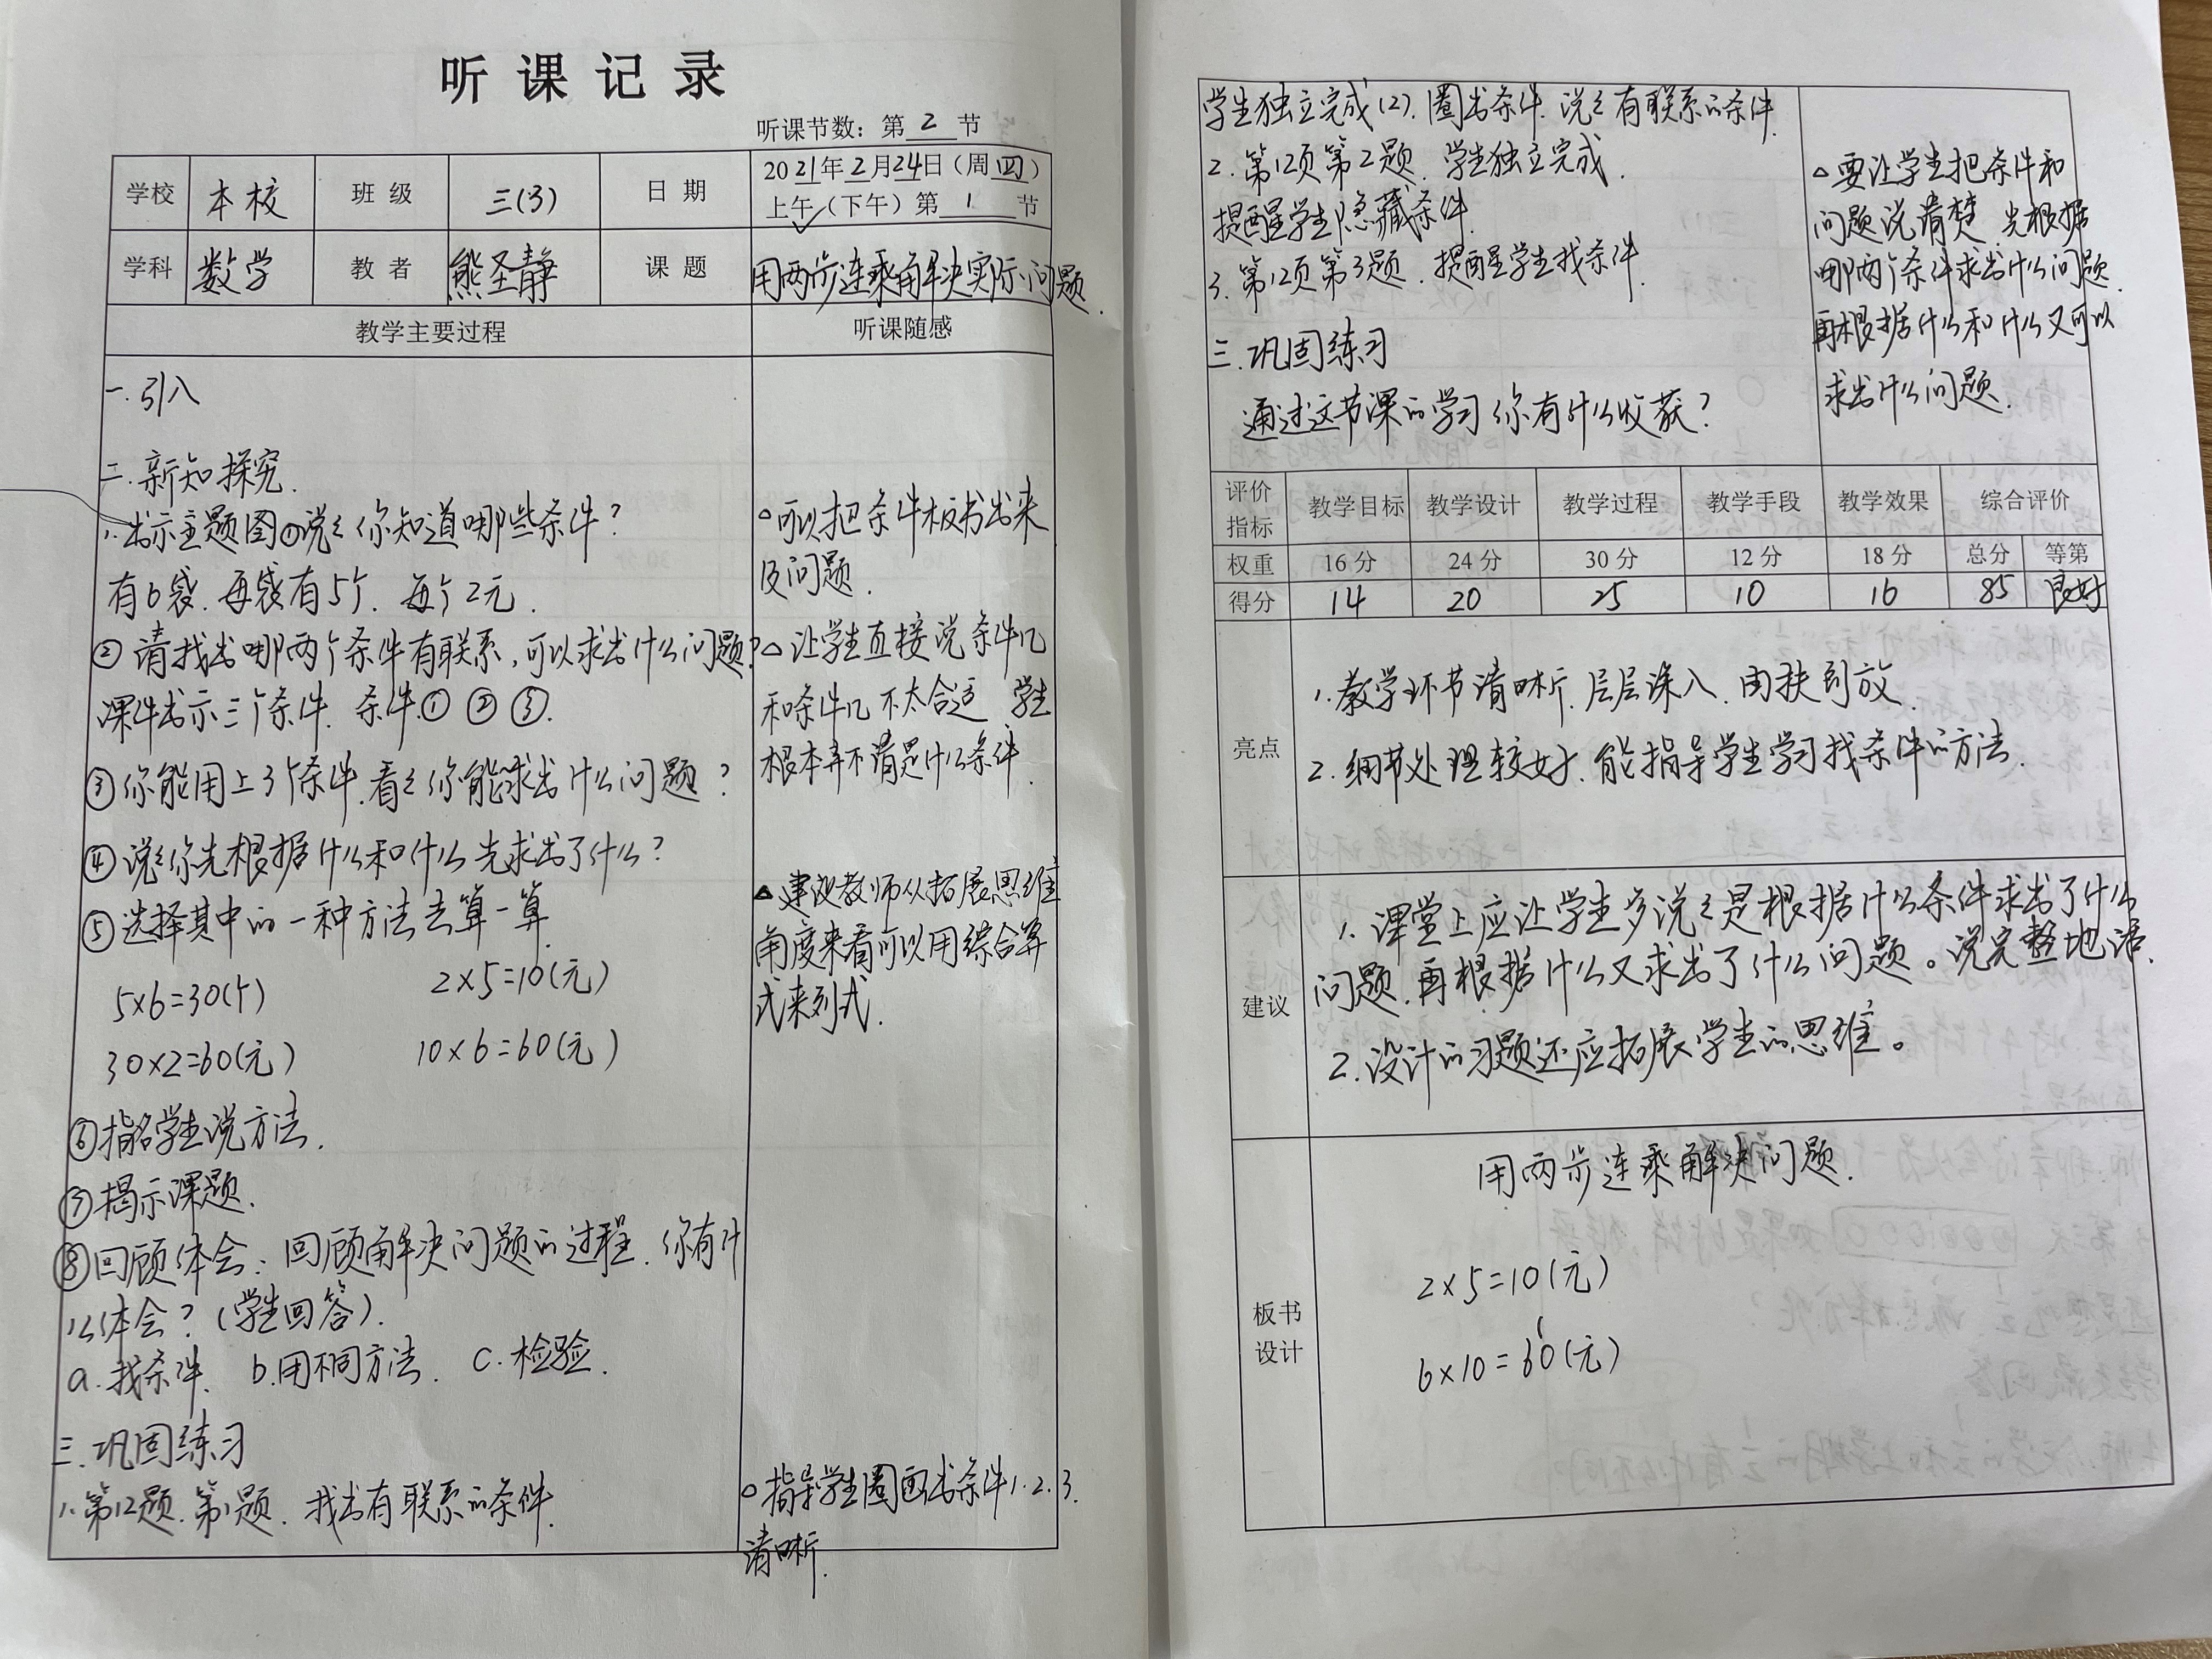 听课记录
听课节数：第 2 节
学校 本校 班级 三(3) 日期 2021年2月24日（周四）
上午✓（下午）第 1 节
学科 数学 教者 熊圣静 课题 用两步连乘解决实际问题.
教学主要过程 听课随感
一.引入
二.新知探究.
1.出示主题图①说说你知道哪些条件?
有6袋.每袋有5个.每个2元.
②请找出哪两个条件有联系,可以求出什么问题?
课件出示三个条件.条件①②③.
③你能用上3个条件.看看你能求出什么问题?
④说说你先根据什么和什么先求出了什么?
⑤选择其中的一种方法去算一算.
5×6=30(个) 2×5=10(元)
30×2=60(元) 10×6=60(元)
⑥指名学生说方法.
⑦揭示课题.
⑧回顾体会:回顾解决问题的过程.你有什
么体会?(学生回答).
a.找条件. b.用不同方法. c.检验.
三.巩固练习
1.第12题.第1题.找出有联系的条件.
○可以把条件板书出来
及问题.
△让学生直接说条件几
和条件几不太合适 学生
根本弄不清是什么条件.
△建议教师从拓展思维
角度来看可以用综合算
式来列式.
○指导学生圈画出条件1.2.3.
清晰.
学生独立完成(2).圈出条件.说说有联系的条件.
2.第12页第2题.学生独立完成.
提醒学生隐藏条件.
3.第12页第3题.提醒学生找条件.
三.巩固练习
通过这节课的学习你有什么收获?
△要让学生把条件和
问题说清楚.先根据
哪两个条件求出什么问题.
再根据什么和什么又可以
求出什么问题.
评价指标 教学目标 教学设计 教学过程 教学手段 教学效果 综合评价
权重 16分 24分 30分 12分 18分 总分 等第
得分 14 20 25 10 16 85 良好
亮点
1.教学环节清晰.层层深入.由扶到放.
2.细节处理较好.能指导学生学习找条件的方法.
建议
1.课堂上应让学生多说说是根据什么条件求出了什么
问题.再根据什么又求出了什么问题。说完整地话.
2.设计的习题还应拓展学生的思维。
板书设计
用两步连乘解决问题.
2×5=10(元)
6×10=60(元)